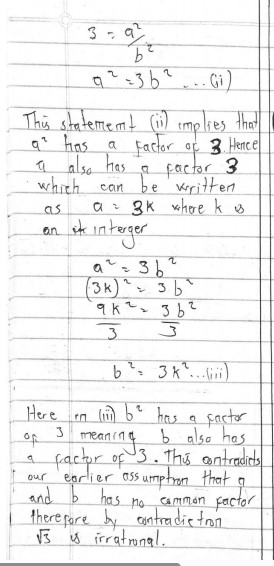 3 = a²/b²
a² = 3b² ...(ii)
This statement (ii) implies that
a² has a factor of 3. Hence
a also has a factor 3
which can be written
as a = 3k where k is
an interger
a² = 3b²
(3k)² = 3b²
9k²/3 = 3b²/3
b² = 3k² ...(iii)
Here in (iii) b² has a factor
of 3 meaning b also has
a factor of 3. This contradicts
our earlier assumption that a
and b has no common factor
therefore by contradiction
√3 is irrational.